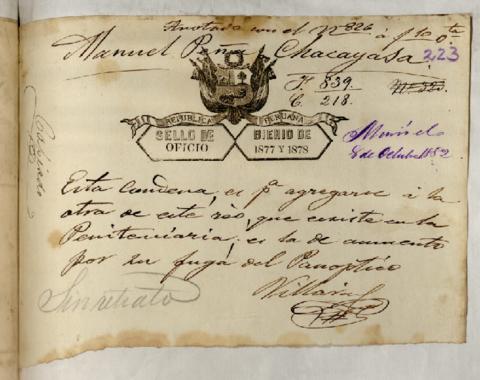 Anotada con el Nº 826 á f
Manuel Pino Chacayasa
223
F. 839.
C. 218.
REPUBLICA PERUANA
SELLO DE OFICIO
BIENIO DE 1877 Y 1878
Murió el
8 de Octubre
Esta Condena, es pª agregarse á la
otra de este réo, que existe en la
Penitenciaria, es la de aumento
por su fugá del Panoptico
Villar
Sin retrato